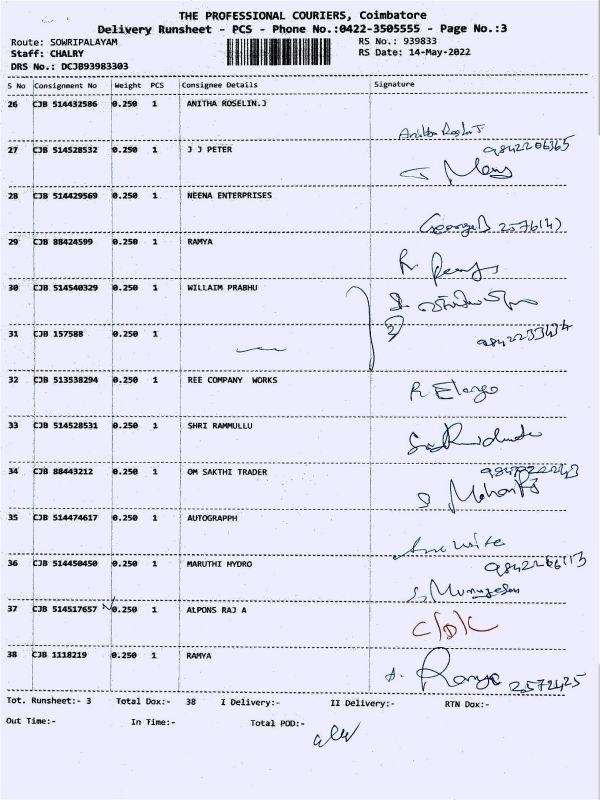 THE PROFESSIONAL COURIERS, Coimbatore
Delivery Runsheet - PCS - Phone No.:0422-3505555 - Page No.:3
Route: SOWRIPALAYAM RS No.: 939833
Staff: CHALRY RS Date: 14-May-2022
DRS No.: DCJB93983303
S No Consignment No Weight PCS Consignee Details Signature
26 CJB 514432586 0.250 1 ANITHA ROSELIN.J
27 CJB 514528532 0.250 1 J J PETER
28 CJB 514429569 0.250 1 NEENA ENTERPRISES
29 CJB 88424599 0.250 1 RAMYA
30 CJB 514540329 0.250 1 WILLAIM PRABHU
31 CJB 157588 0.250 1
32 CJB 513538294 0.250 1 REE COMPANY WORKS
R Elango
33 CJB 514528531 0.250 1 SHRI RAMMULLU
34 CJB 88443212 0.250 1 OM SAKTHI TRADER
35 CJB 514474617 0.250 1 AUTOGRAPPH
36 CJB 514450450 0.250 1 MARUTHI HYDRO
S Murugesan
37 CJB 514517657 0.250 1 ALPONS RAJ A
C/D/C
38 CJB 1118219 0.250 1 RAMYA
Tot. Runsheet:- 3 Total Dox:- 38 I Delivery:- II Delivery:- RTN Dox:-
Out Time:- In Time:- Total POD:-